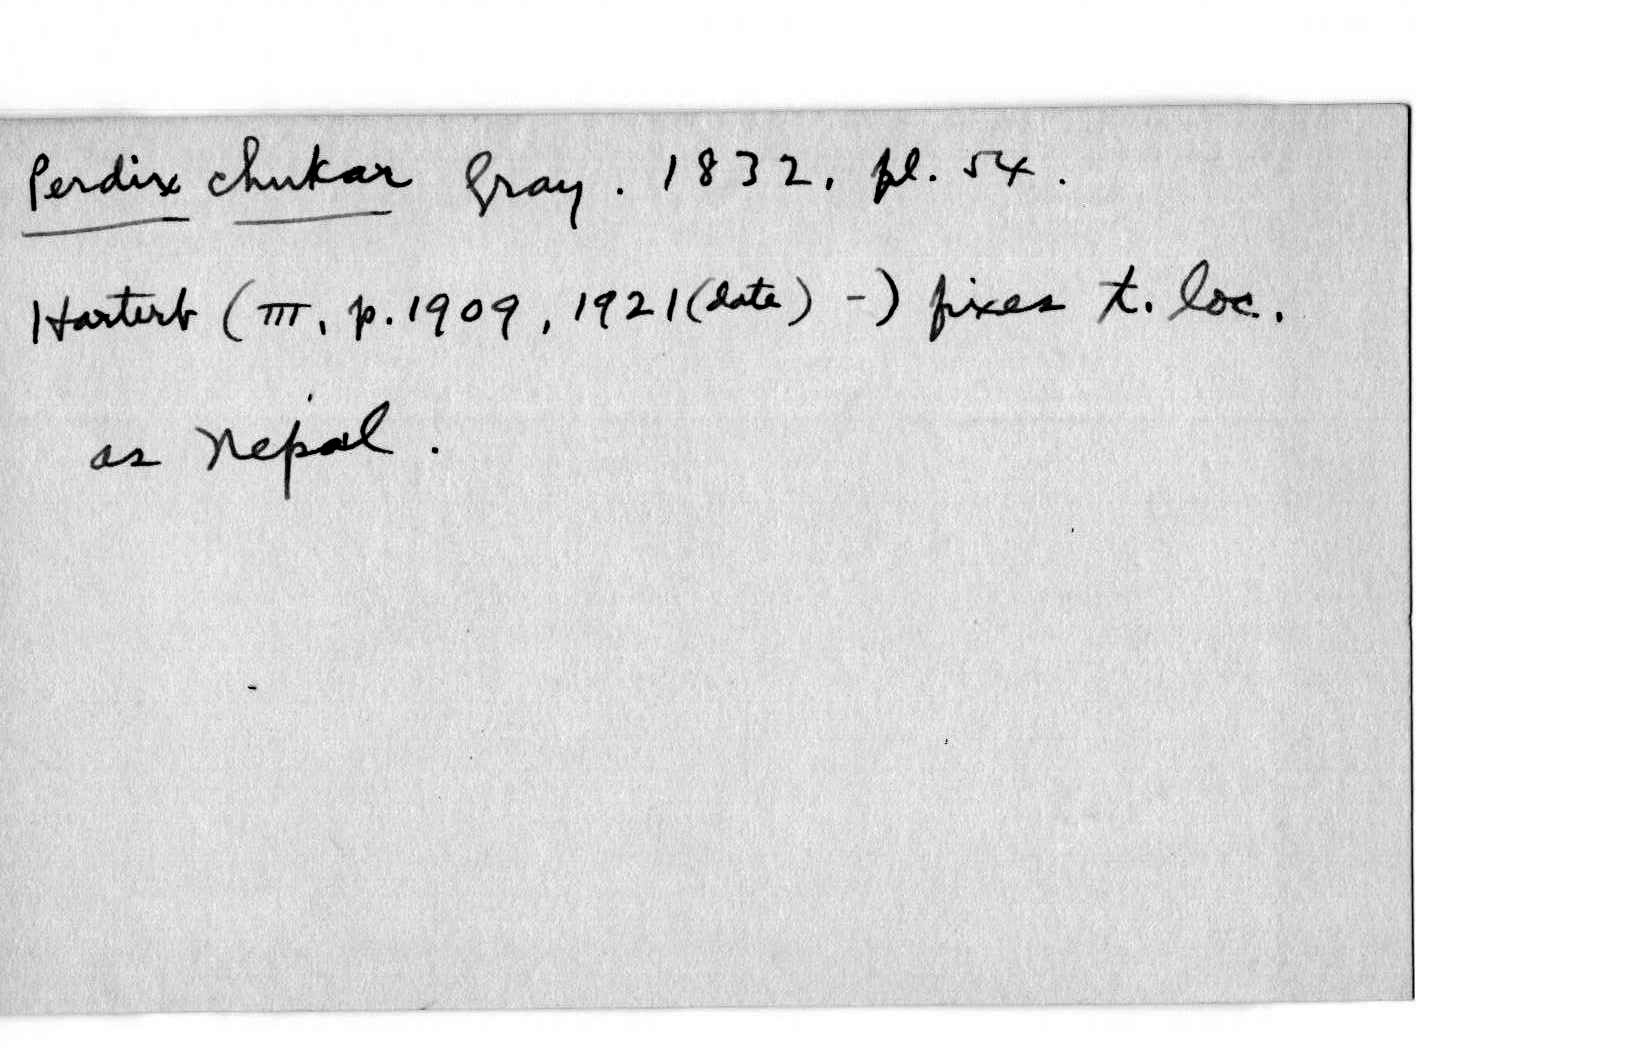 Perdix chukar Gray. 1832, pl. 54.
Hartert (III, p. 1909, 1921 (date) -) fixes t. loc.
as Nepal.